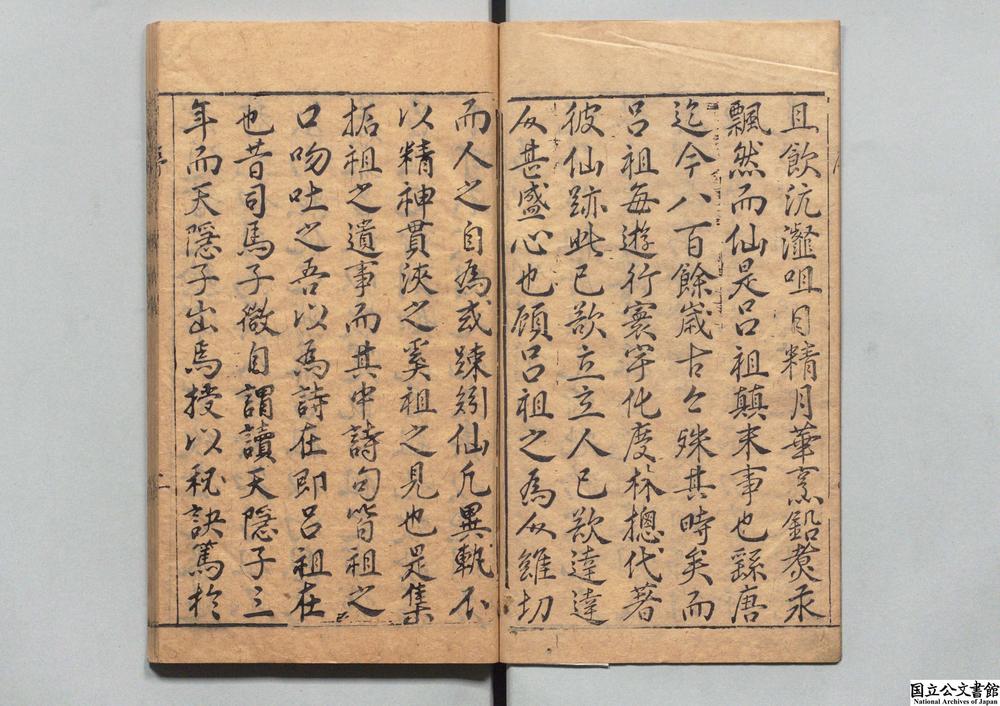 且飲沆瀣咀日精月華烹鉛煑汞
飄然而仙是呂祖顛末事也繇唐
迄今八百餘歲古今殊其時矣而
呂祖每遊行寰宇化度林摠代著
彼仙跡此已欲立立人已欲達達
人甚盛心也顧呂祖之為人雖切
而人之自為或踈剏仙凡異軌不
以精神貫浹之奚祖之見也是集
掋祖之遺事而其中詩句皆祖之
口吻吐之吾以為詩在即呂祖在
也昔司馬子微自謂讀天隱子三
年而天隱子出焉授以秘訣篤於
序
二
国立公文書館
National Archives of Japan